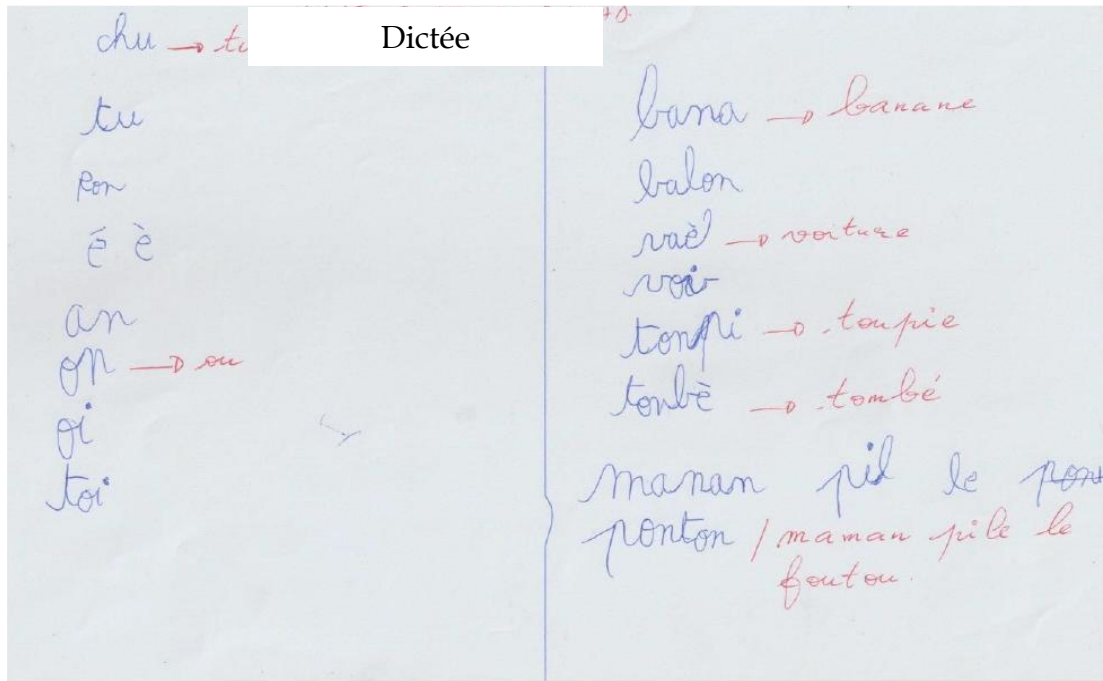 Dictée
chu → tu
tu
ron
é è
an
on → ou
oi
toi
bana → banane
balon
vaè → voiture
voi
tonpi → toupie
tonbè → tombé
manan pil le pon
ponton / maman pile le
foutou.